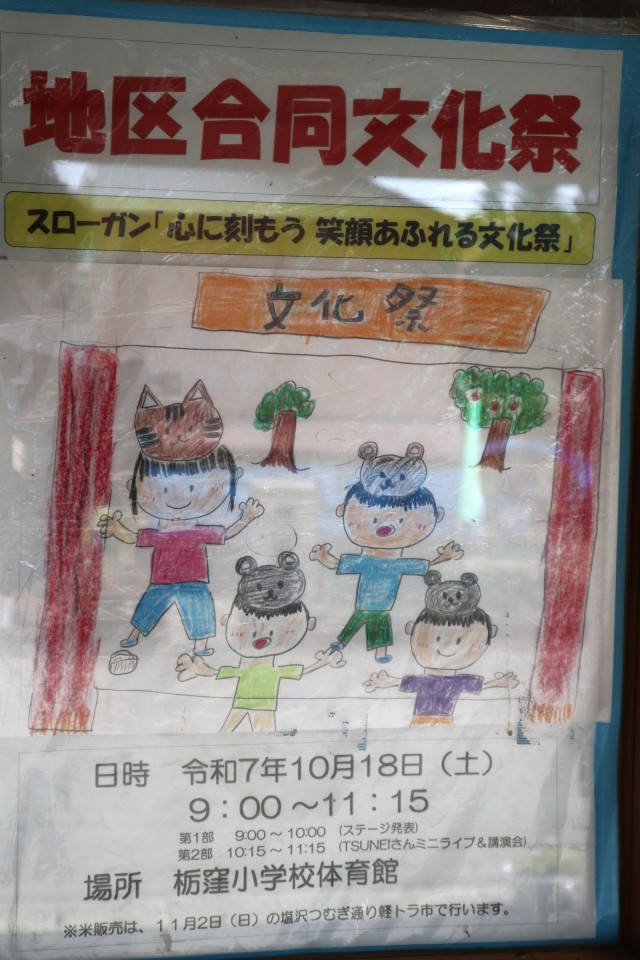 地区合同文化祭
スローガン「心に刻もう 笑顔あふれる文化祭」
文化祭
日時 令和7年10月18日（土）
9：00～11：15
第1部 9:00～10:00 （ステージ発表）
第2部 10:15～11:15 （TSUNEIさんミニライブ＆講演会）
場所 栃窪小学校体育館
※米販売は、11月2日（日）の塩沢つむぎ通り軽トラ市で行います。